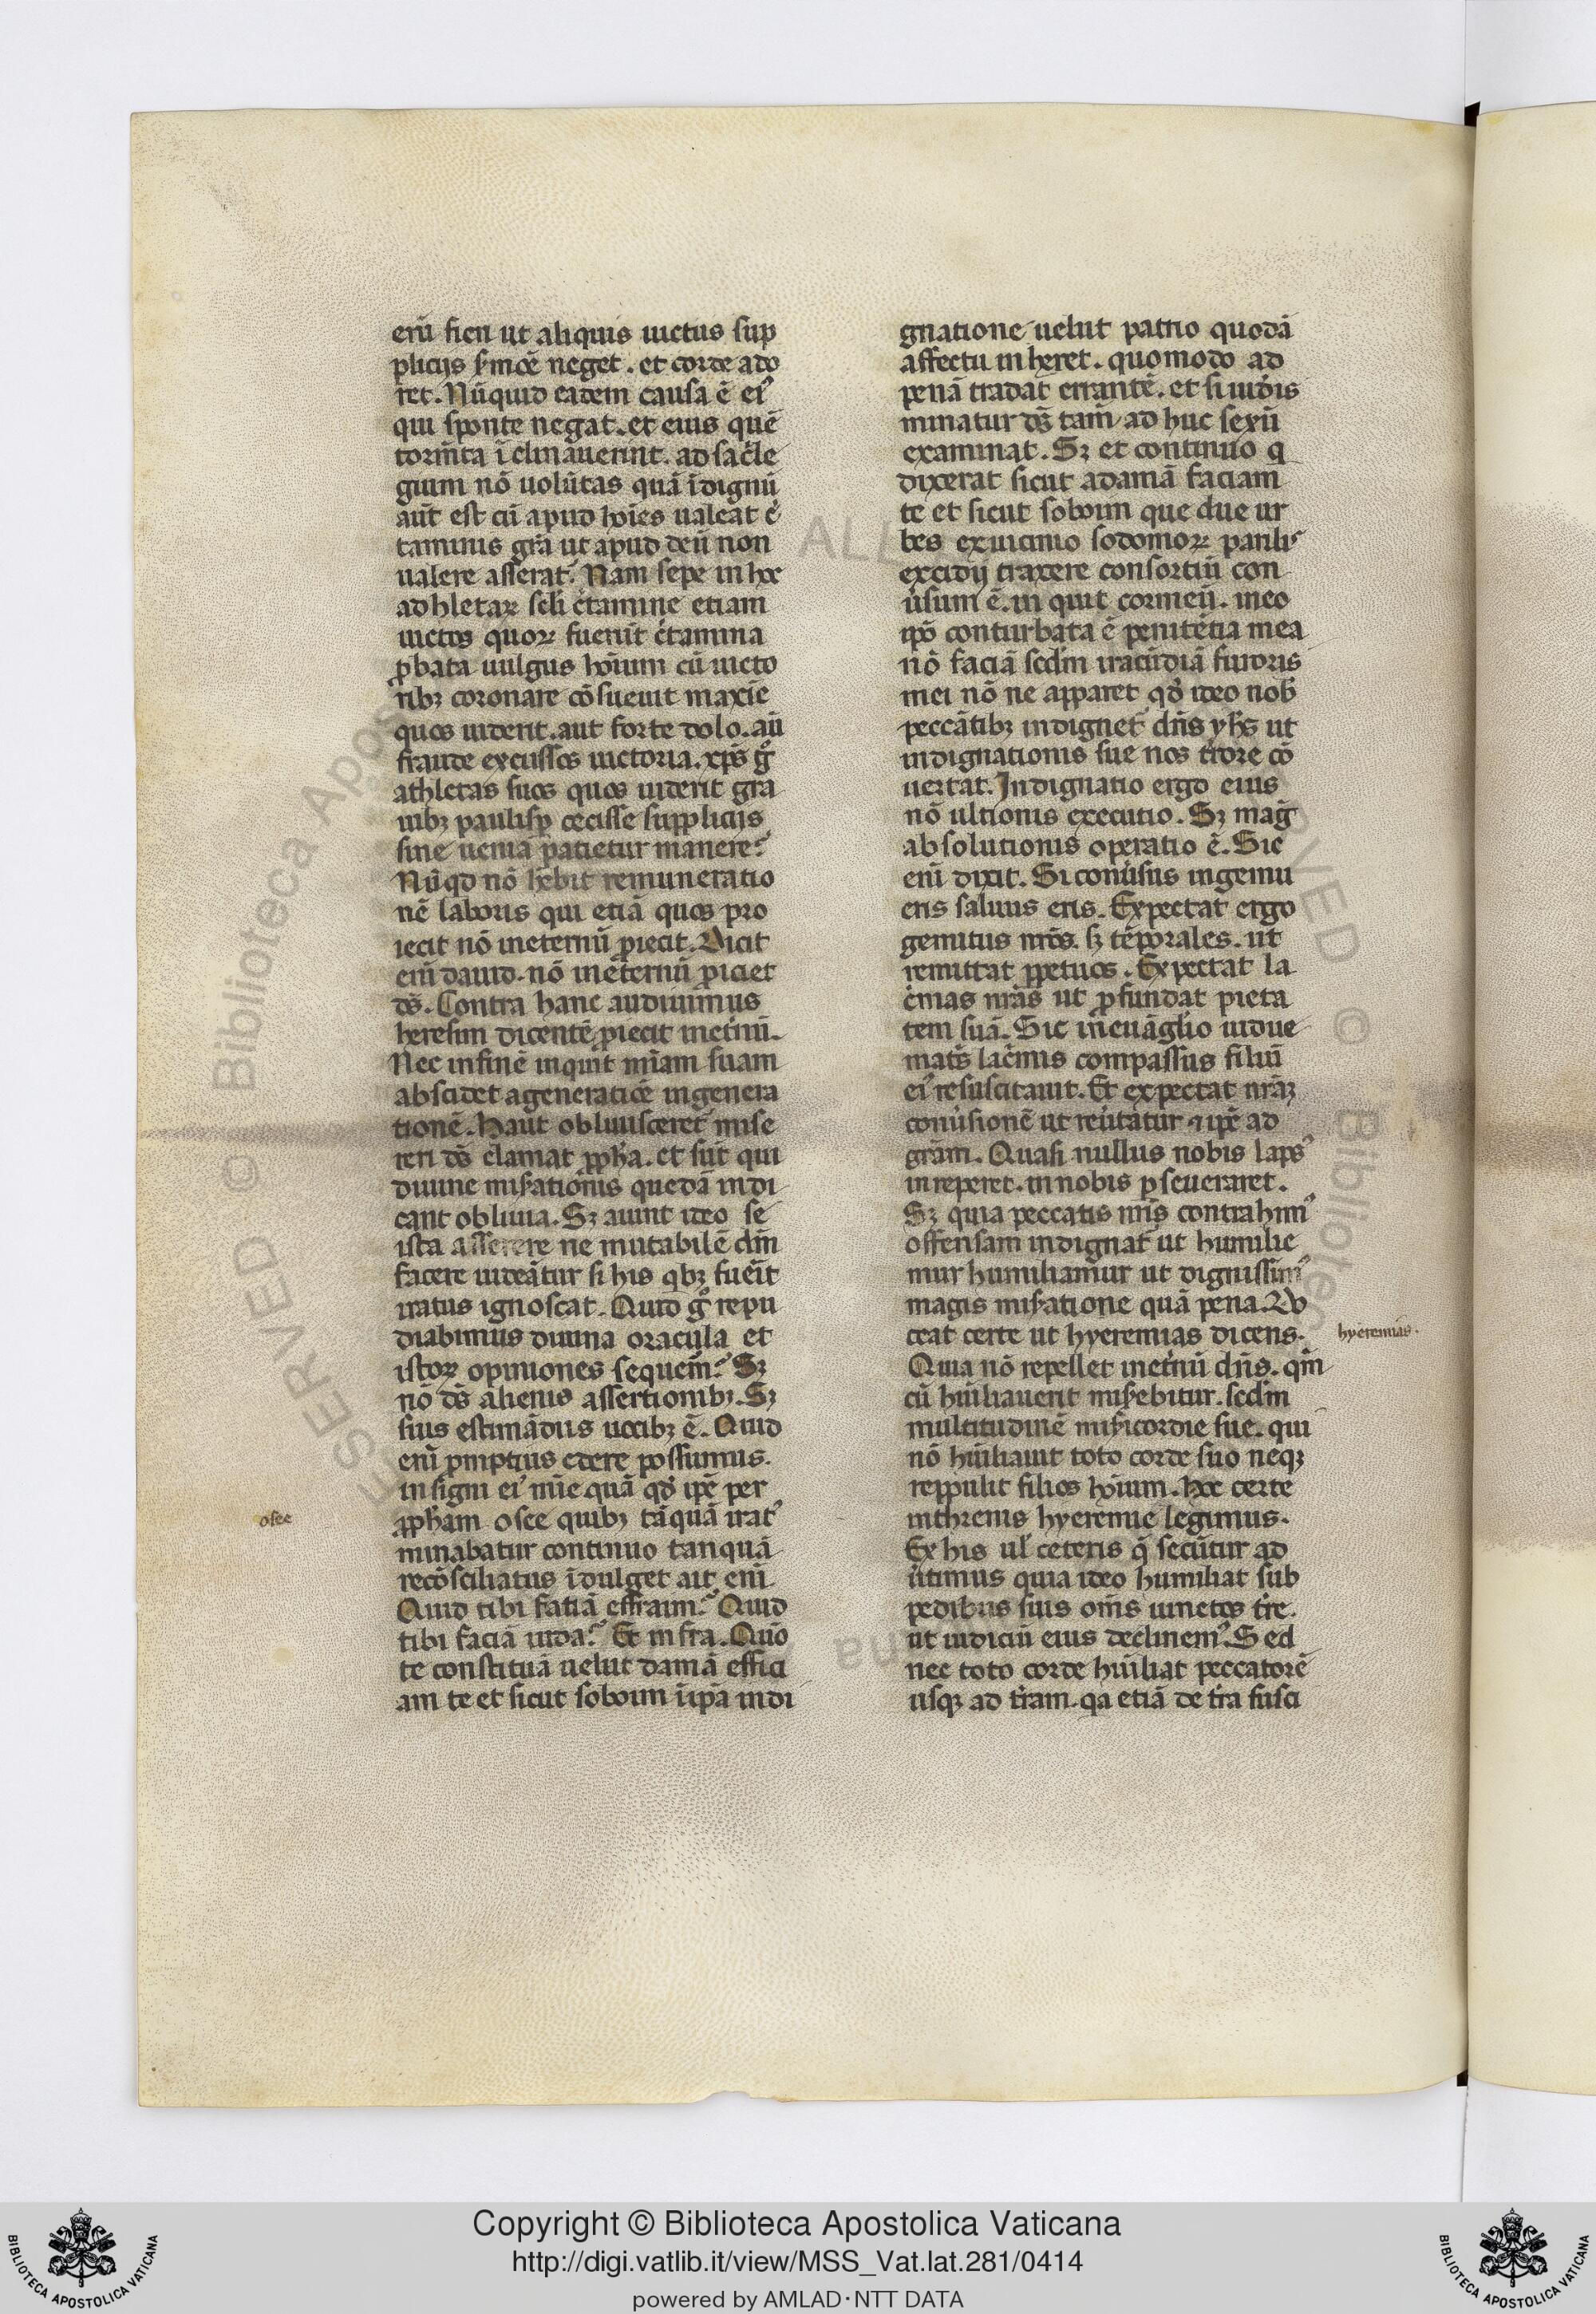 enī fieri ut aliquis uictus sup
pliciis ẜmōe neget. et corde ado
ret. Nūquid eadem causa ē eiꝰ
qui sponte negat. et eius quē
torm̄ta ī clinauerint. ad sac̓le
gium nō uolūtas quā īdignū
aut̄ est cū apud hoīes ualeat c̓
taminis gr̄a ut apud deū non
ualere asserat? Nam sepe in hoc
adhletaꝝ scłi c̓tamine etiam
uictos quoꝝ fuerīt c̓tamina
ꝓbata uulgus hoīum cū uicto
ribꝫ coronare cōsueuit maxīe
quos uiderit. aut forte dolo. aū
fraude excussos uictoria. xp̄s gͦ
athletas suos quos uiderit gra
uibꝫ paulisꝑ cecisse suppliciis
sine uenia patietur manere?
Nūqd nō hēbit remuneratio
nē laboris qui etiā quos pro
iecit nō ineternū ꝓiecit. Dicit
enī dauid. nō inet̓ernū ꝓiciet
ds̄. Contra hanc audiuimus
heresim dicentē ꝓiecit inet̓nū.
Nec infinē inquit mīam suam
abscidet ageneratiōe ingenera
tionē. Haut obliuisceret̉ mise
reri ds̄ clamat ꝓph̄a. et sūt qui
diuine miẜationis quedā indi
cant obliuia. Sꝫ aiunt ideo se
ista asserere ne mutabilē dn̄m
facere uideātur si his qbꝫ fuer̄it
iratus ignoscat. Quid gͦ repu
diabimus diuina oracula et
istoꝝ opiniones sequem̄? Sꝫ
nō ds̄ alienis assertionibꝫ. Sꝫ
suis estimādus uocibꝫ ē. Quid
enī ꝓmptius c̓dere possumus.
insigni eiꝰ mīe quā qđ ip̄e per
ꝓph̄am osee quibꝫ tāquā iratꝰ
minabatur continuo tanquā
recōsciliatus īdulget ait enī.
Quid tibi fatiā effraim? Quid
tibi faciā iuda? Et infra. Quō
te constituā uelut damā effici
am te et sicut soboim ūip̄a indi
osee
gnatione uelut patrio quodā
affectu inheret. quomodo ad
penā tradat errantē. et si iudeis
minatur ds̄ tam̄ ad huc sexū
examinat. Sꝫ et continuo q
dixerat sicut adamā faciam
te et sicut soboim que due ur
bes exuicinio sodomoꝝ parilis
excidii traxere consortiū con
ūsum ē. in quit cor meū. meo
ip̄o conturbata ē penitētia mea
nō faciā scdm̄ iracūdiā furoris
mei nō ne apparet qđ ideo nob̄
peccātibꝫ indignet̉ dn̄s yhs̄ ut
indignationis sue nos t̓rore cō
uertat. Indignatio ergo eius
nō ultionis executio. Sꝫ mag̓
absolutionis operatio ē. Sic
enī dixit. Si conūsus ingemu
eris saluus eris. Expectat ergo
gemitus nrōs. sꝫ tēporales. ut
remittat ꝑpetuos. Expectat la
c̓mas nrās ut ꝓfundat pieta
tem suā. Sic ineuāglio uidue
mat̓s lac̓mis compassus filiū
eiꝰ resuscitauit. Et expectat nrāꝫ
conūsionē ut reūtatur ⁊ ip̄e ad
grām. Quasi nullus nobis lapsꝰ
inreperet. in nobis ꝑseueraret.
Sꝫ quia peccatis nrīs contrahimꝰ
offensam indignat̉ ut humilie
mur humiliamur ut dignissimꝰ
magis miẜatione quā pena. Do
ceat certe ut hyeremias dicens.
hyeremias.
Quia nō repellet inet̓nū dn̄s. qm̄
cū hūiliauerit miẜebitur. scdm̄
multitudinē miẜicordie sue. qui
nō hūiliauit toto corde suo neqꝫ
reppulit filios hoīum. Hoc certe
inthrenis hyeremie legimus.
Ex his uł ceteris q̄ secūtur ad
ūtimus quia ideo humiliat sub
pedibus suis om̄s uinctos tr̄e.
ut iudiciū eius declinemꝰ. Sed
nec toto corde hūiliat peccatorē
usqꝫ ad tr̄am. qa etiā de tr̄a susci
Copyright © Biblioteca Apostolica Vaticana
http://digi.vatlib.it/view/MSS_Vat.lat.281/0414
powered by AMLAD·NTT DATA